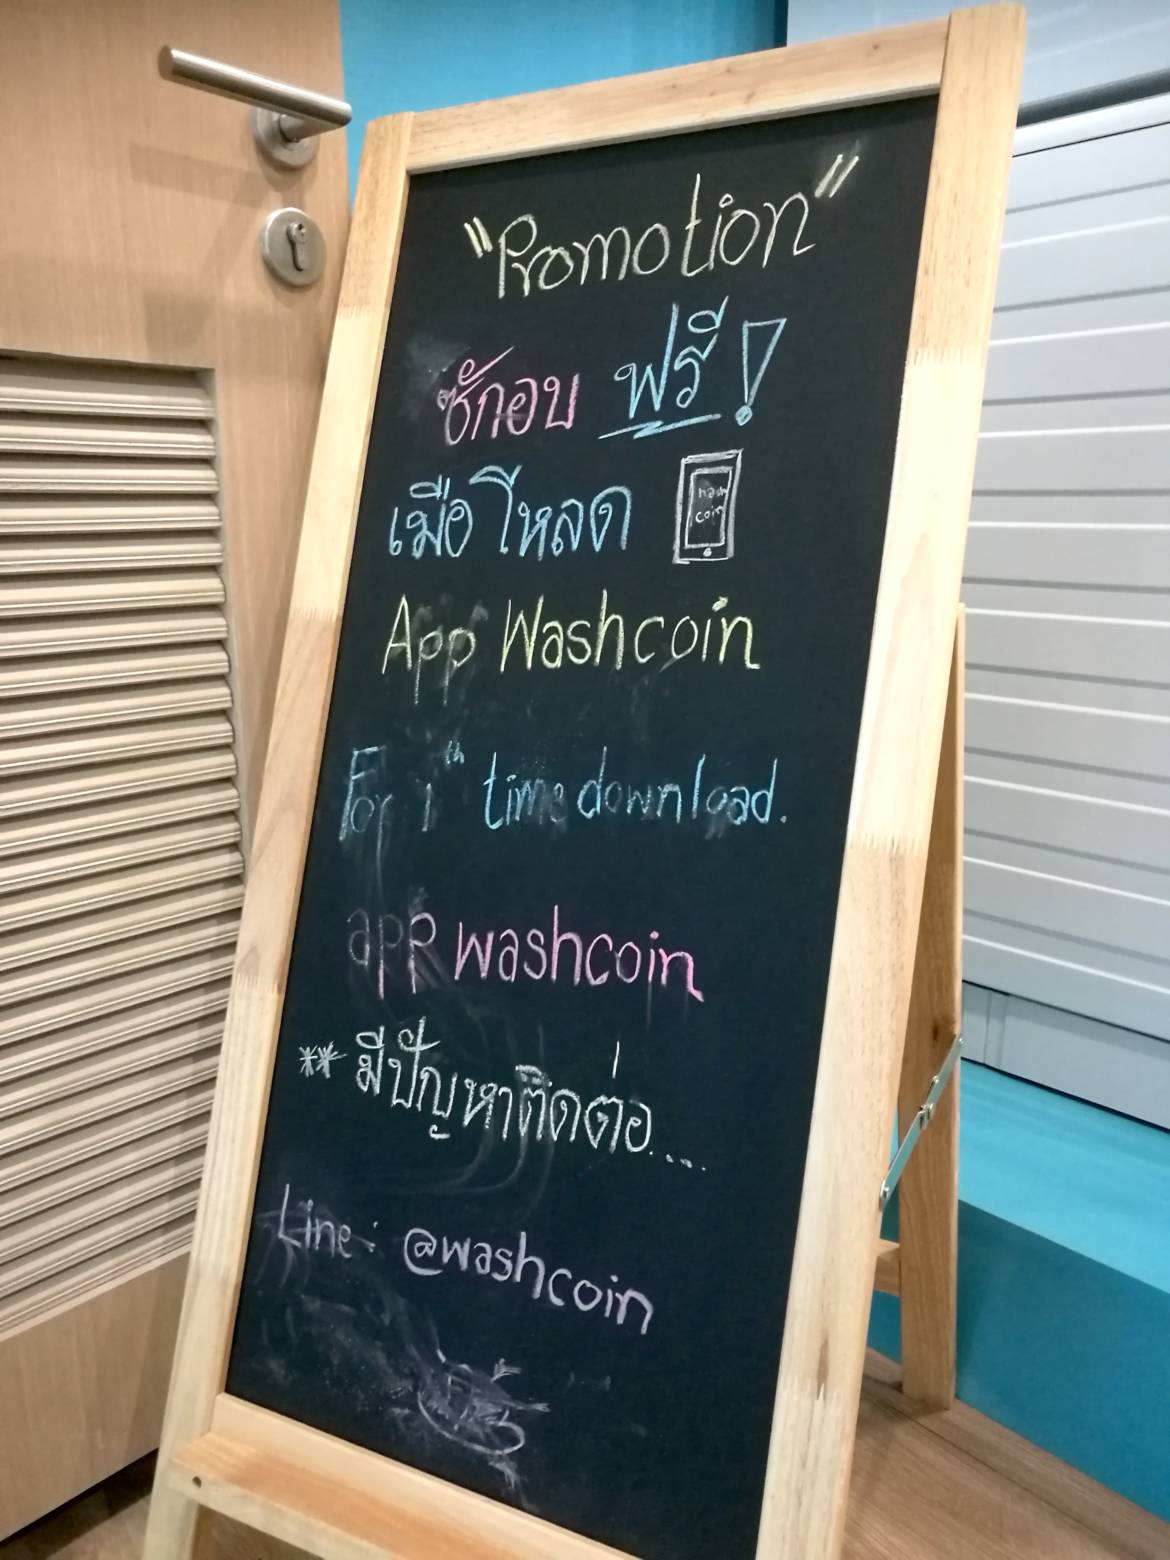 "Promotion"
ซักอบ ฟรี!
เมื่อโหลด
wash
coin
App Washcoin
For 1th time download.
app washcoin
** มีปัญหาติดต่อ....
Line: @washcoin